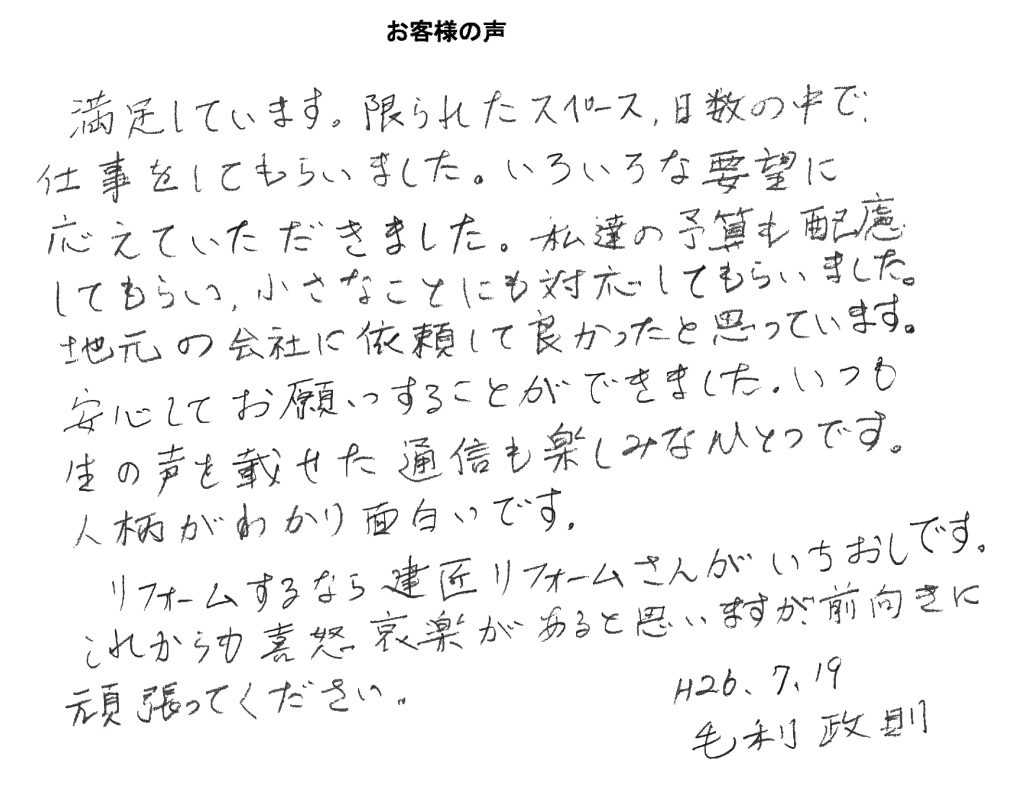 お客様の声
満足しています。限られたスペース、日数の中で、
仕事をしてもらいました。いろいろな要望に
応えていただきました。私達の予算も配慮
してもらい、小さなことにも対応してもらいました。
地元の会社に依頼して良かったと思っています。
安心してお願いすることができました。いつも
生の声を載せた通信も楽しみなひとつです。
人柄がわかり面白いです。
リフォームするなら建匠リフォームさんがいちおしです。
これからも喜怒哀楽があると思いますが、前向きに
頑張ってください。
H26、7、19
毛利政則